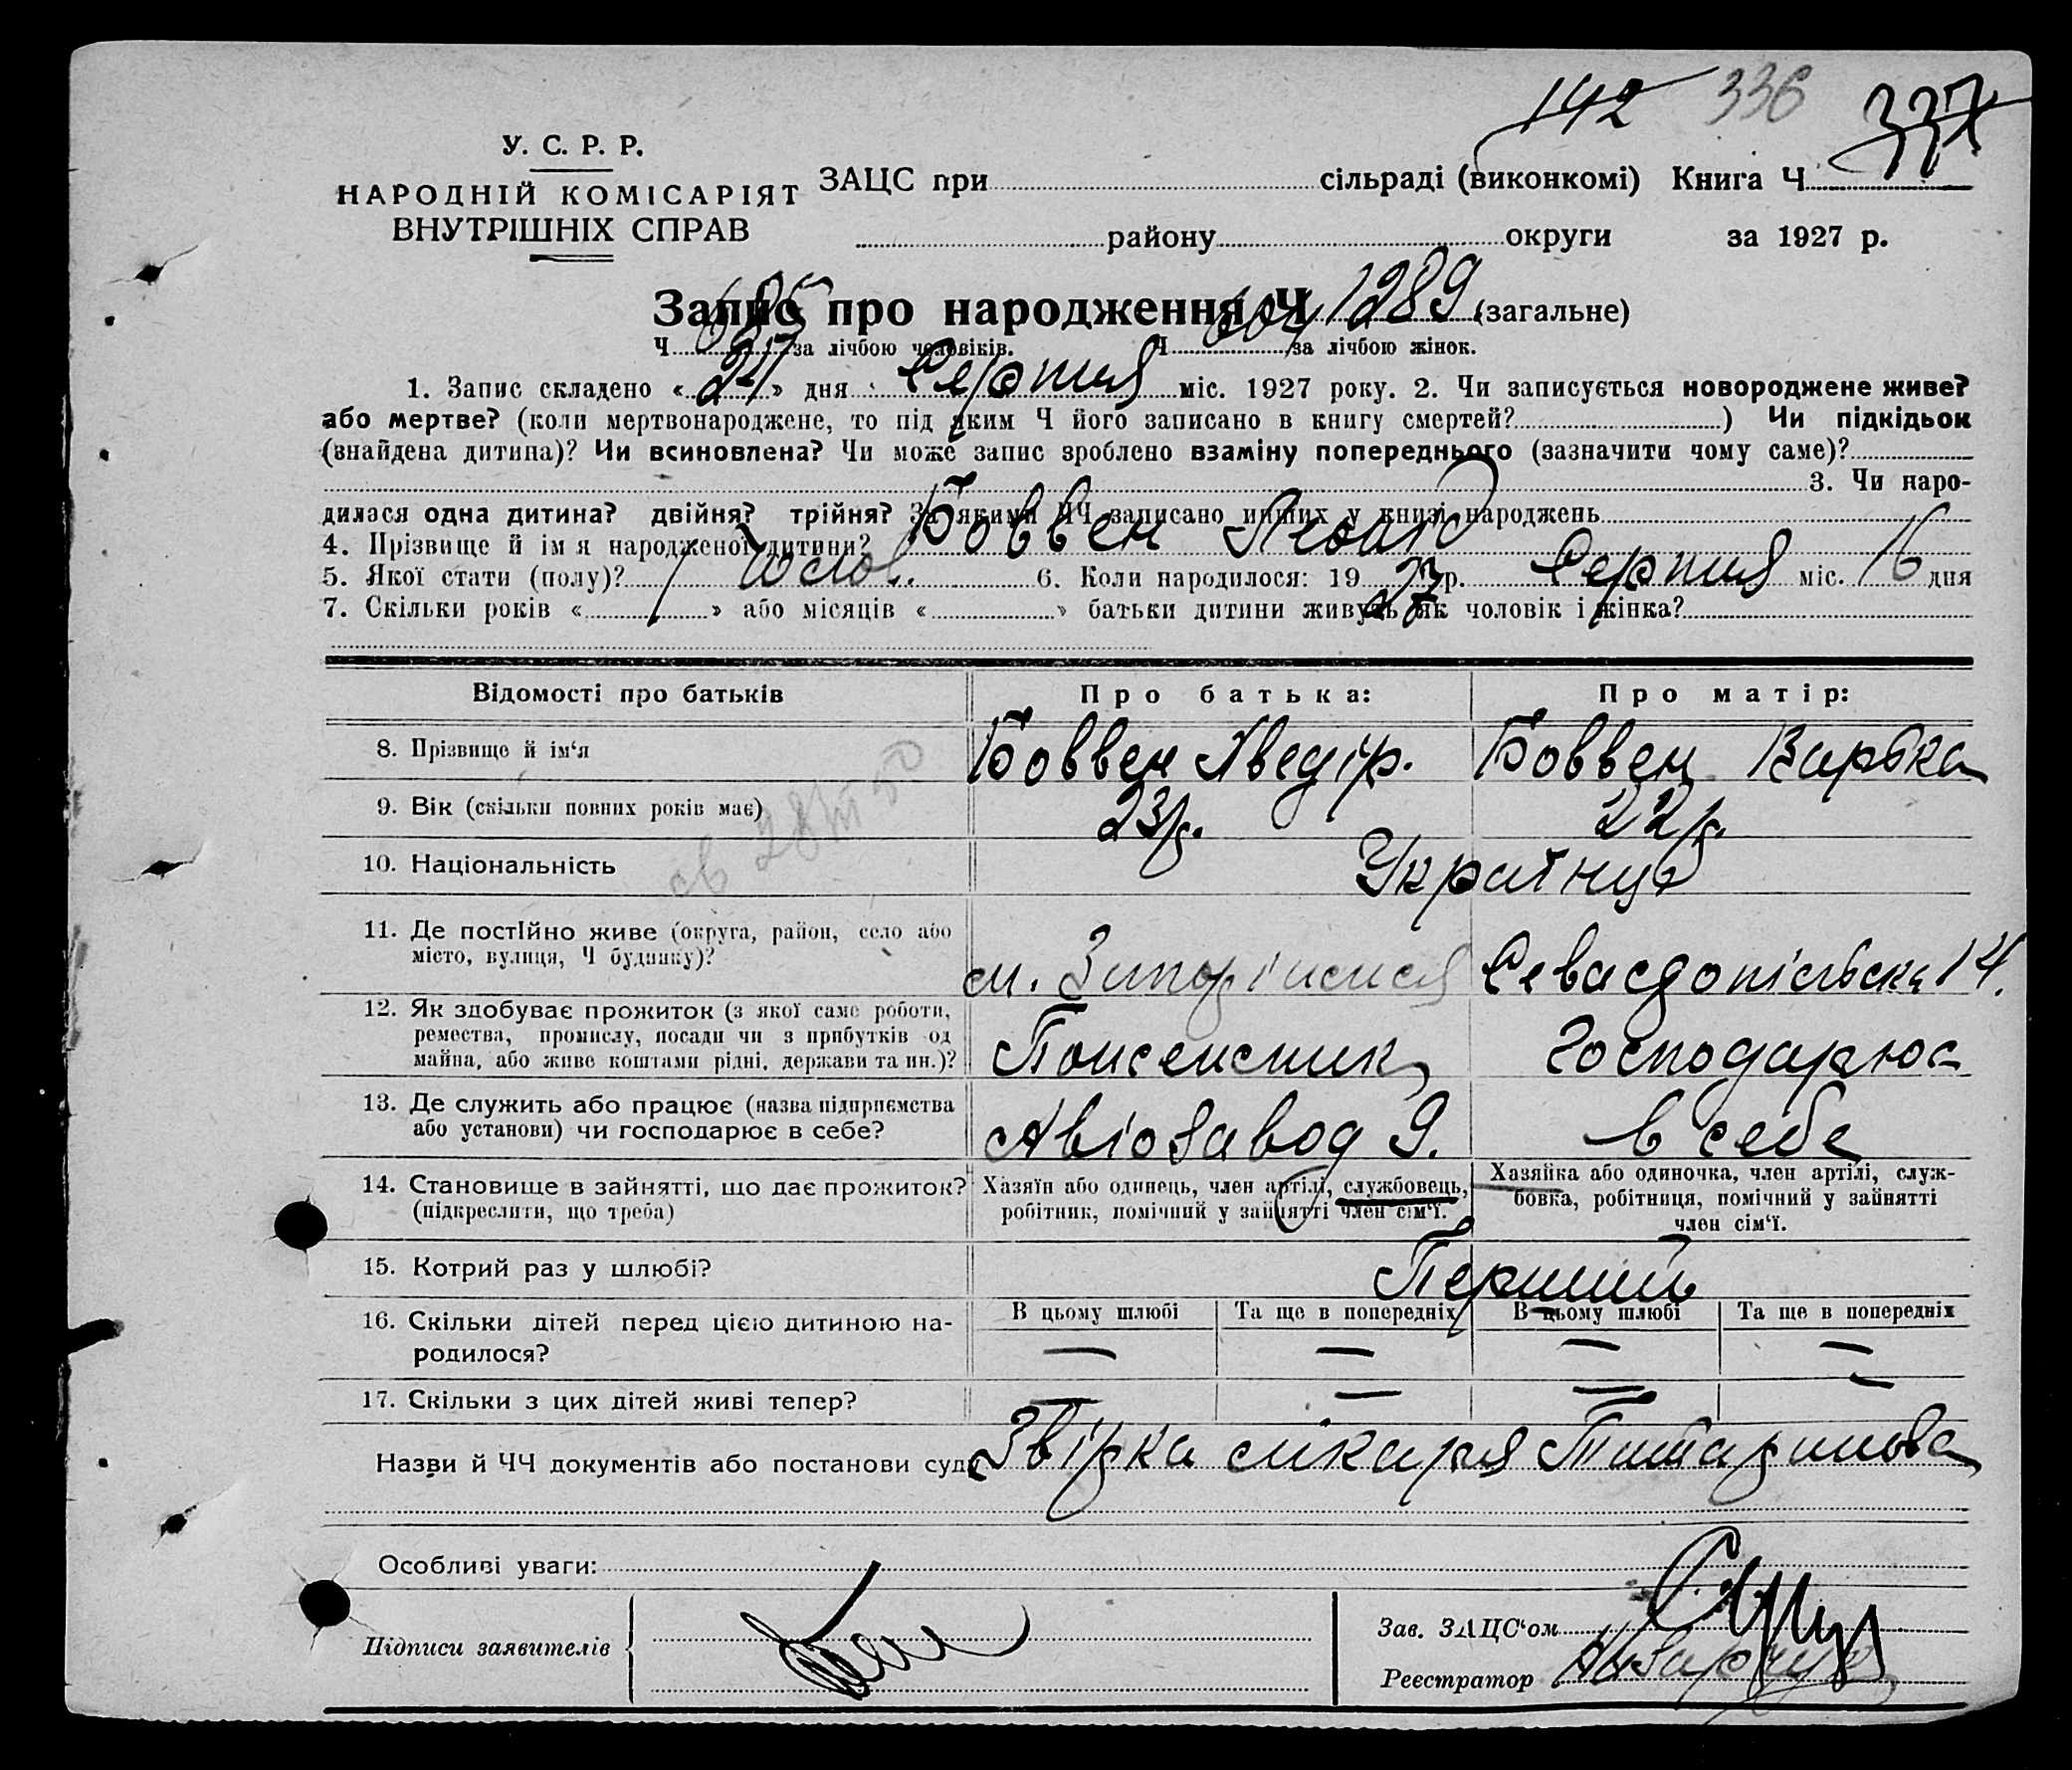 142 336 337
У. С. Р. Р.
НАРОДНІЙ КОМІСАРІЯТ
ВНУТРІШНІХ СПРАВ
ЗАЦС при сільраді (виконкомі) Книга Ч
району округи за 1927 р.
Запис про народження Ч 1289 (загальне)
Ч 685 за лічбою чоловіків. Ч 604 за лічбою жінок.
1. Запис складено « 24 » дня Серпня міс. 1927 року. 2. Чи записується новороджене живе?
або мертве? (коли мертвонароджене, то під яким Ч його записано в книгу смертей? ) Чи підкідьок
(знайдена дитина)? Чи всиновлена? Чи може запис зроблено взаміну попереднього (зазначити чому саме)?
3. Чи наро-
дилася одна дитина? двійня? трійня? За якими ЧЧ записано инших у книзі народжень
4. Прізвище й ім я народженої дитини? Боввен
5. Якої стати (полу)? чолов. 6. Коли народилося: 19 27 р. Серпня міс. 16 дня
7. Скільки років « » або місяців « » батьки дитини живуть як чоловік і жінка?
Відомості про батьків Про батька: Про матір:
8. Прізвище й ім‘я Боввен Хведір. Боввен Варвка
9. Вік (скільки повних років має) 23р. 22р.
10. Національність Українці
11. Де постійно живе (округа, район, село або
місто, вулиця, Ч будинку)? м. Запоріжжя Севасдопільска 14.
12. Як здобуває прожиток (з якої саме роботи,
ремества, промислу, посади чи з прибутків од
майна, або живе коштами рідні, держави та ин.)? Господарює
13. Де служить або працює (назва підприємства
або установи) чи господарює в себе? Авіозавод 9. в себе
14. Становище в зайнятті, що дає прожиток?
(підкреслити, що треба)
Хазяїн або одинець, член артілі, службовець,
робітник, помічний у зайнятті член сім‘ї.
Хазяйка або одиночка, член артілі, служ-
бовка, робітниця, помічний у зайнятті
член сім‘ї.
15. Котрий раз у шлюбі? Перший
В цьому шлюбі Та ще в попередніх В цьому шлюбі Та ще в попередніх
16. Скільки дітей перед цією дитиною на-
родилося? — — — —
17. Скільки з цих дітей живі тепер? — — — —
Назви й ЧЧ документів або постанови суду Звірка лікаря
Особливі уваги:
Підписи заявителів
Зав. ЗАЦС‘ом
Реєстратор